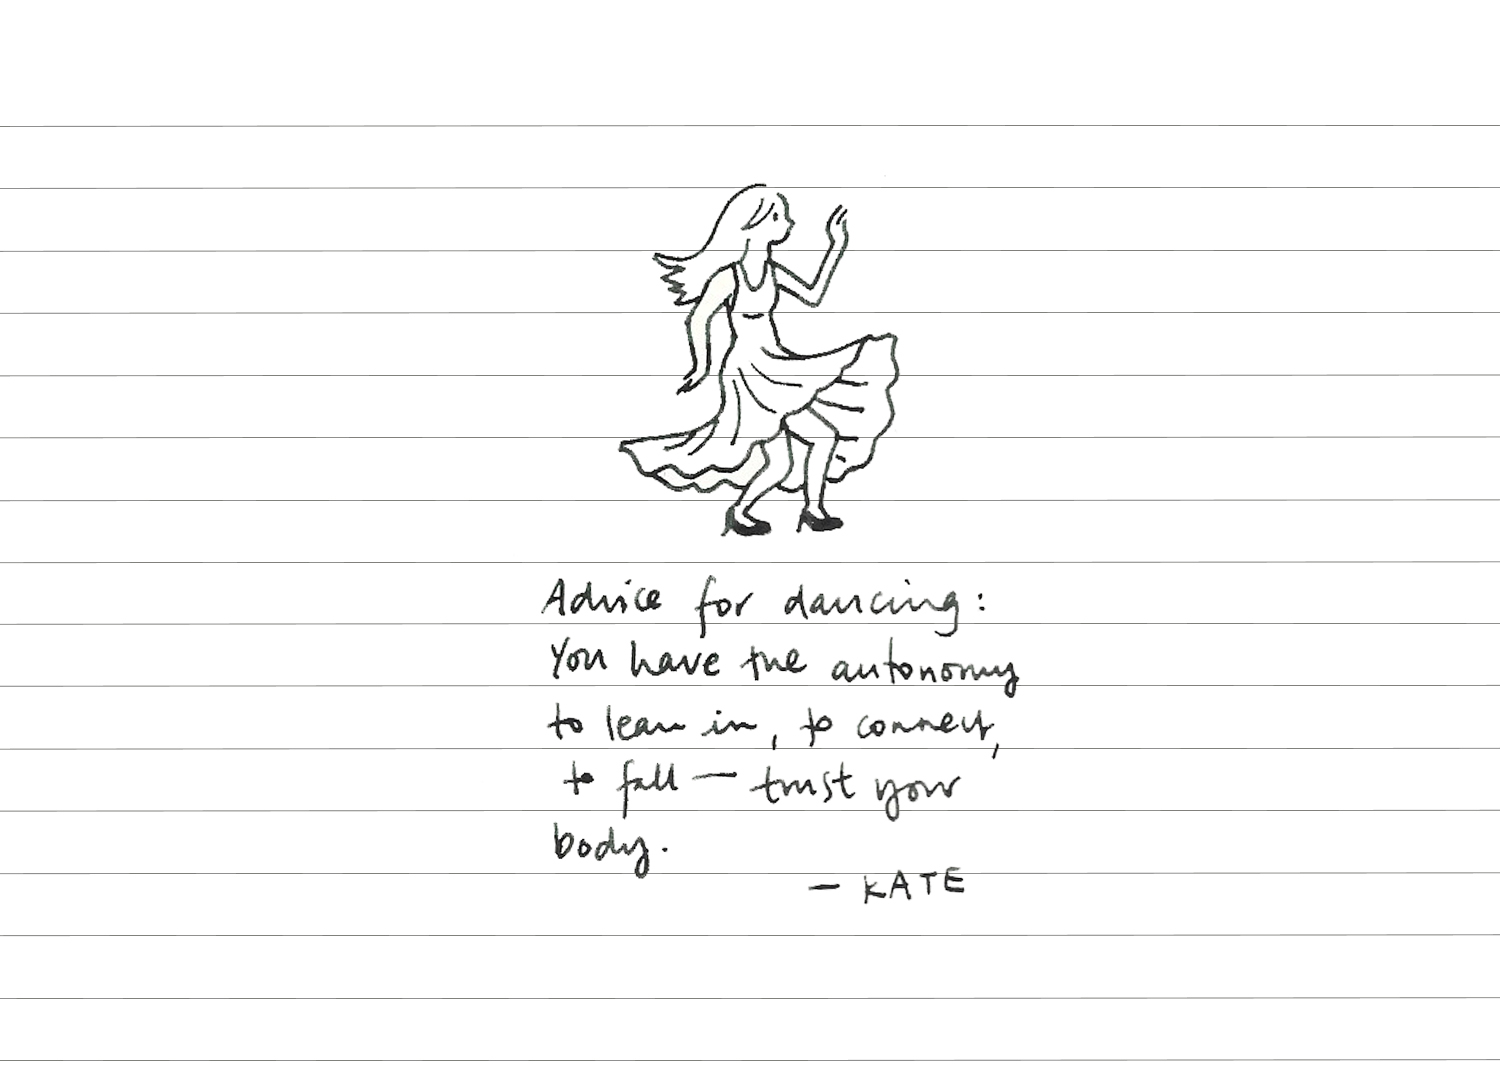 Advice for dancing:
You have the autonomy
to lean in, to connect,
to fall — trust your
body.
— KATE